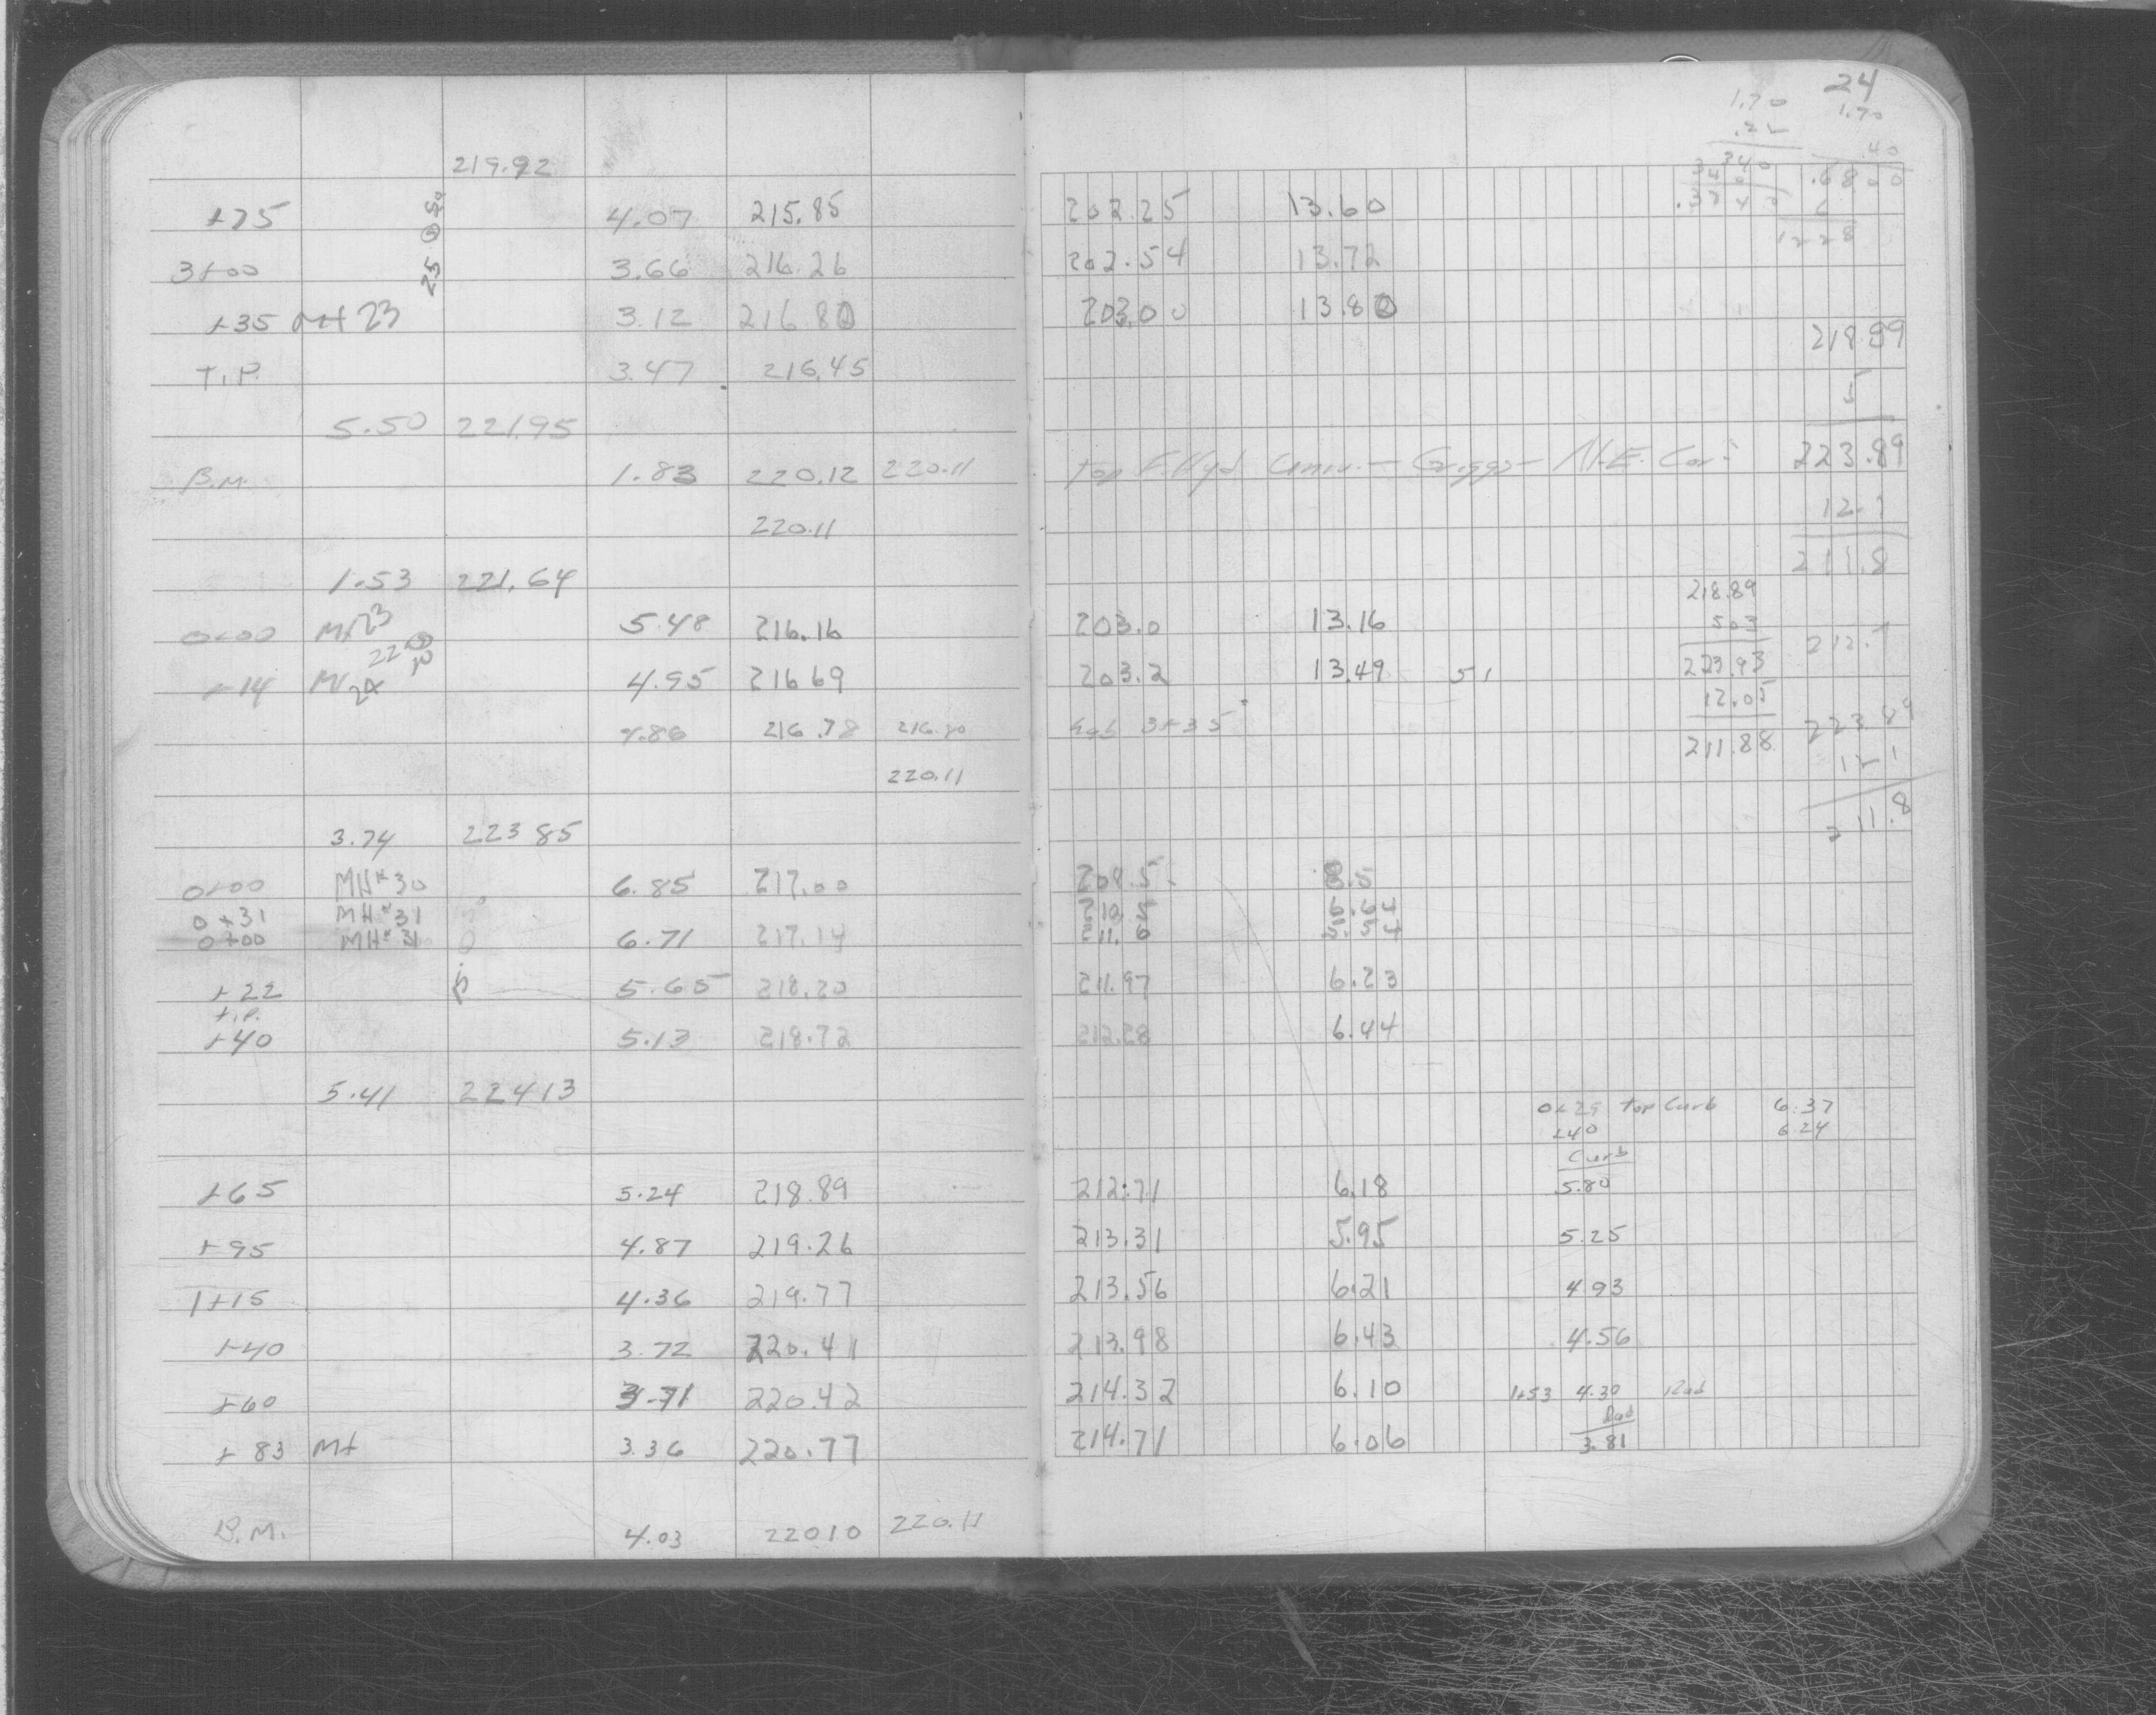 24
1.70 1.70
219.92 .40
+75 4.07 215.85 202.25 13.60
3+00 3.66 216.26 202.54 13.72
1228
+35 MH 23 3.12 216.80 203.00 13.80
218.89
T.P. 3.47 216.45
5
5.50 221.95
B.M. 1.83 220.12 220.11 Top F. Hyd. Univ. - Griggs - N.E. Cor. 223.89
220.11 12.1
1.53 221.64 211.8
218.89
0+00 MH 23 5.48 216.16 203.0 13.16 5.03
+14 4.95 216.69 203.2 13.49 51 223.93
12.05
4.86 216.78 216.80 hub 3+35 211.88 223.89
220.11 12 1
211.8
3.74 223 85
0+00 MH#30 6.85 217.00 208.5 8.5
0+31 MH#31 210.5 6.64
0+00 MH#31 6.71 217.14 211.6 5.54
+22 5.65 218.20 211.97 6.23
T.P.
+40 5.13 218.72 212.28 6.44
5.41 224 13
0+29 Top Curb 6.37
+40 6.24
Curb
+65 5.24 218.89 212.71 6.18 5.80
+95 4.87 219.26 213.31 5.95 5.25
1+15 4.36 219.77 213.56 6.21 4.93
+40 3.72 220.41 213.98 6.43 4.56
+60 3.71 220.42 214.32 6.10 1+53 4.30 Rad
Rad
+83 MH 3.36 220.77 214.71 6.06 3.81
B.M. 4.03 220 10 220.11